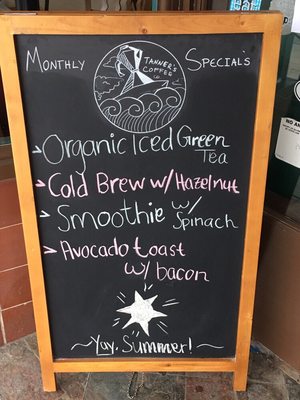 Monthly Special's
TANNER'S
COFFEE
CO
Organic Iced Green
Tea
Cold Brew w/ Hazelnut
Smoothie w/
Spinach
Avocado toast
w/ bacon
~Yay, Summer!~